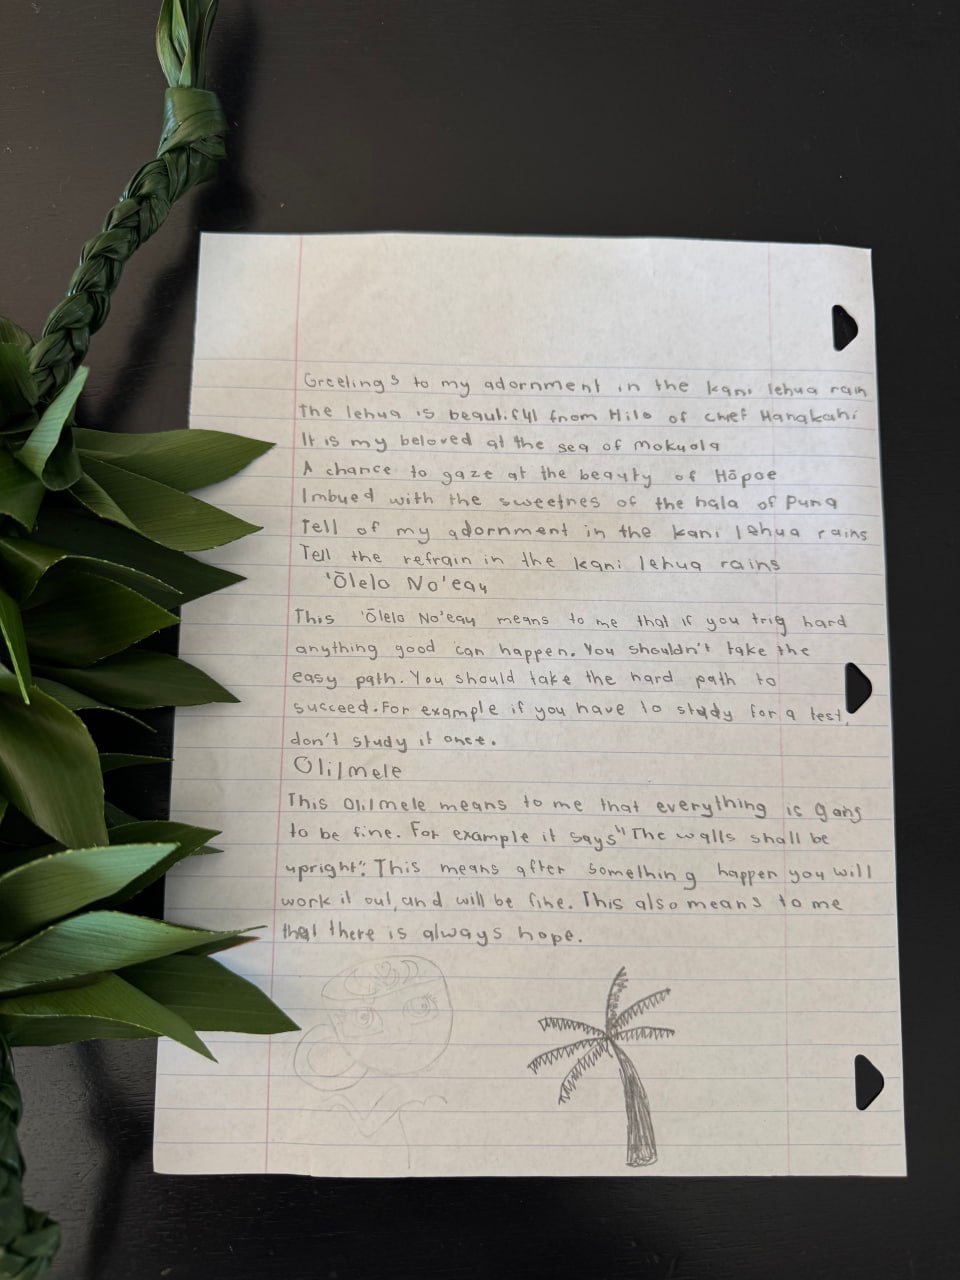 Greetings to my adornment in the kani lehua rain
the lehua is beautiful from Hilo of chief Hanakahi
It is my beloved at the sea of mokuola
A chance to gaze at the beauty of Hōpoe
Imbued with the sweetnes of the hala of Puna
Tell of my adornment in the kani lehua rains
Tell the refrain in the kani lehua rains
'Ōlelo No'eau
This 'Ōlelo No'eau means to me that if you try hard
anything good can happen. You shouldn't take the
easy path. You should take the hard path to
succeed. For example if you have to study for a test,
don't study it once.
Oli/mele
This Oli/mele means to me that everything is going
to be fine. For example it says "The walls shall be
upright". This means after something happen you will
work it out, and will be fine. This also means to me
that there is always hope.